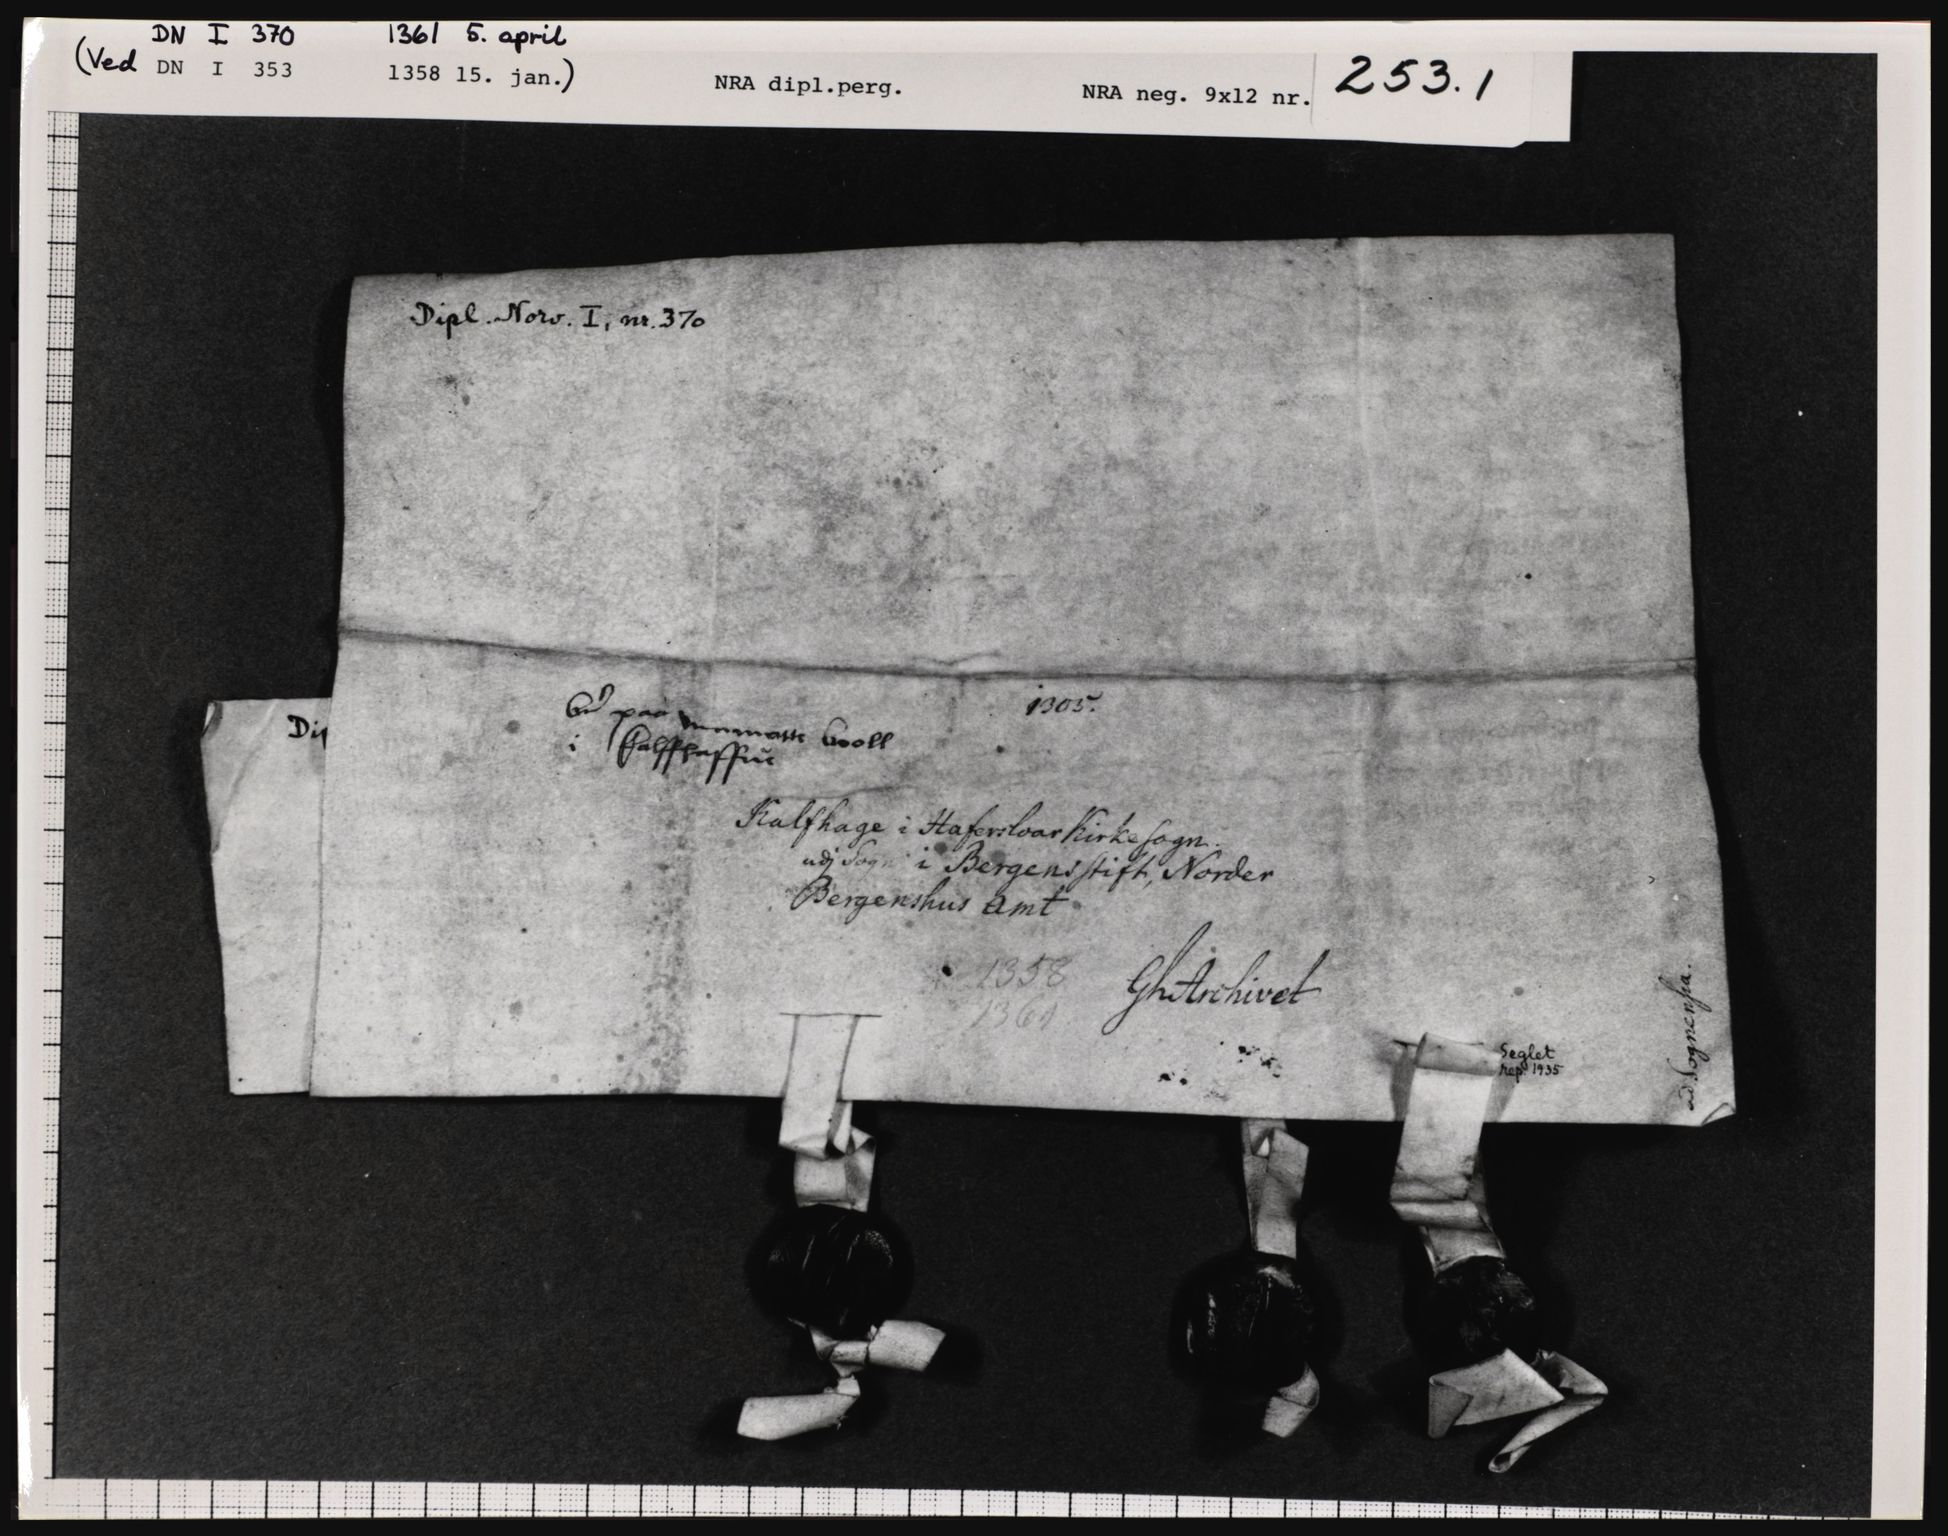 DN I 370 1361 5. april
(Ved DN I 353 1358 15. jan.)
NRA dipl.perg.
NRA neg. 9x12 nr.
253.1
Dipl. Norv. I, nr. 370
Dip
paa
i
1305.
Kalfhage i Hafersloar Kirkesogn.
udj Sogn i Bergens stift, Norder
Bergenshus Amt
1358
1361
Gh Archivet
Seglet
rep. 1935
ad Sognensia.